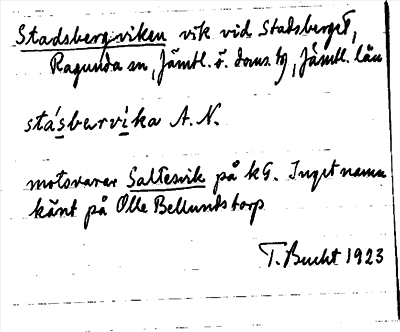 Stadsbergviken vik vid Stadsberget,
Ragunda sn, Jämtl. ö. doms tg, Jämtl. län
stásbarvika A. N.
motsvarar Saltesvik på KG. Inget namn
känt på Olle Bellundstorp
T. Bucht 1923